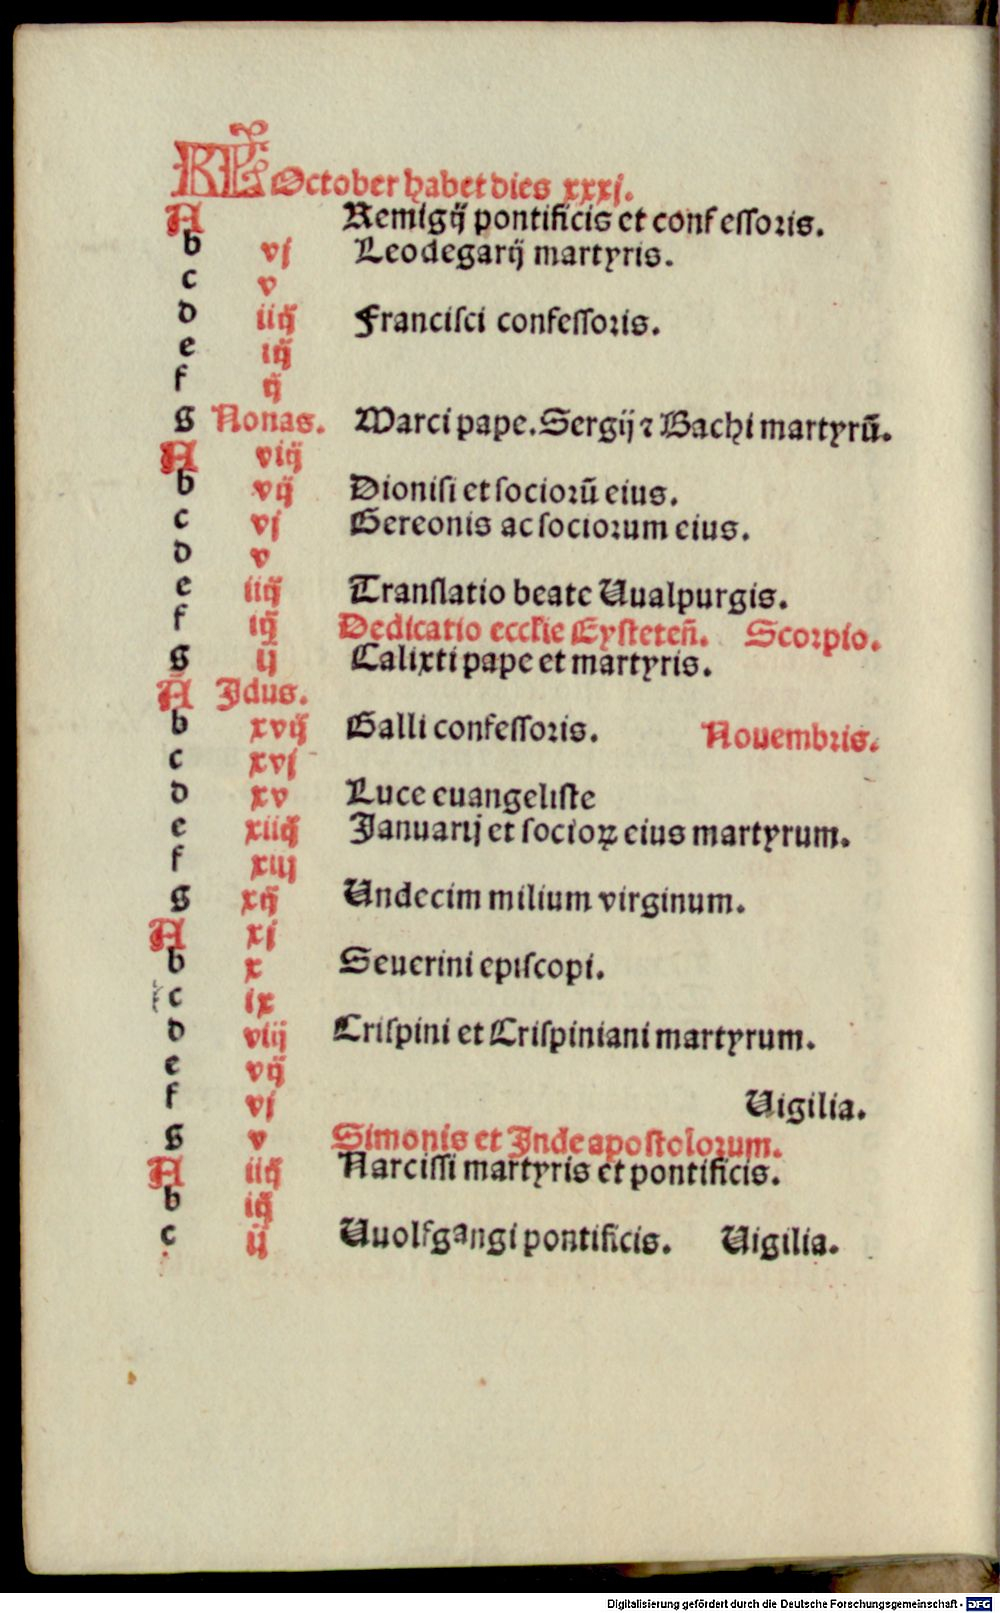 KL October habet dies xxxj.
A Remigij pontificis et confessoris.
b vj Leodegarij martyris.
c v
d iiij Francisci confessoris.
e iij
f ij
g Nonas. Marci pape. Sergij ⁊ Bachi martyrū.
A viij
b vij Dionisi et sociorū eius.
c vj Gereonis ac sociorum eius.
d v
e iiij Translatio beate Uualpurgis.
f iij Dedicatio eccłie Eysteteñ. Scorpio.
g ij Calixti pape et martyris.
A Idus.
b xvij Galli confessoris. Nouembris.
c xvj
d xv Luce euangeliste
e xiiij Januarij et socioꝝ eius martyrum.
f xiij
g xij Undecim milium virginum.
A xj
b x Seuerini episcopi.
c ix
d viij Crispini et Crispiniani martyrum.
e vij
f vj Uigilia.
g v Simonis et Inde apostolorum.
A iiij Narcissi martyris et pontificis.
b iij
c ij Uuolfgangi pontificis. Uigilia.
Digitalisierung gefördert durch die Deutsche Forschungsgemeinschaft - DFG